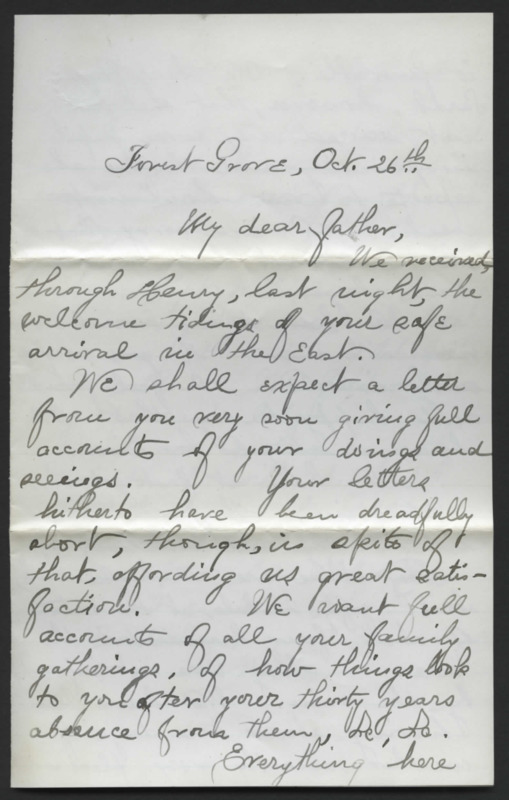 Forest Grove, Oct. 26th
My dear father,
We received,
through Henry, last night, the
welcome tidings of your safe
arrival in the East.
We shall expect a letter
from you very soon giving full
accounts of your doings and
seeings. Your letters
hitherto have been dreadfully
short, though, in spite of
that, affording us great satis-
faction. We want full
accounts of all your family
gatherings, of how things look
to you after your thirty years
absence from them, &c, &c.
Everything here